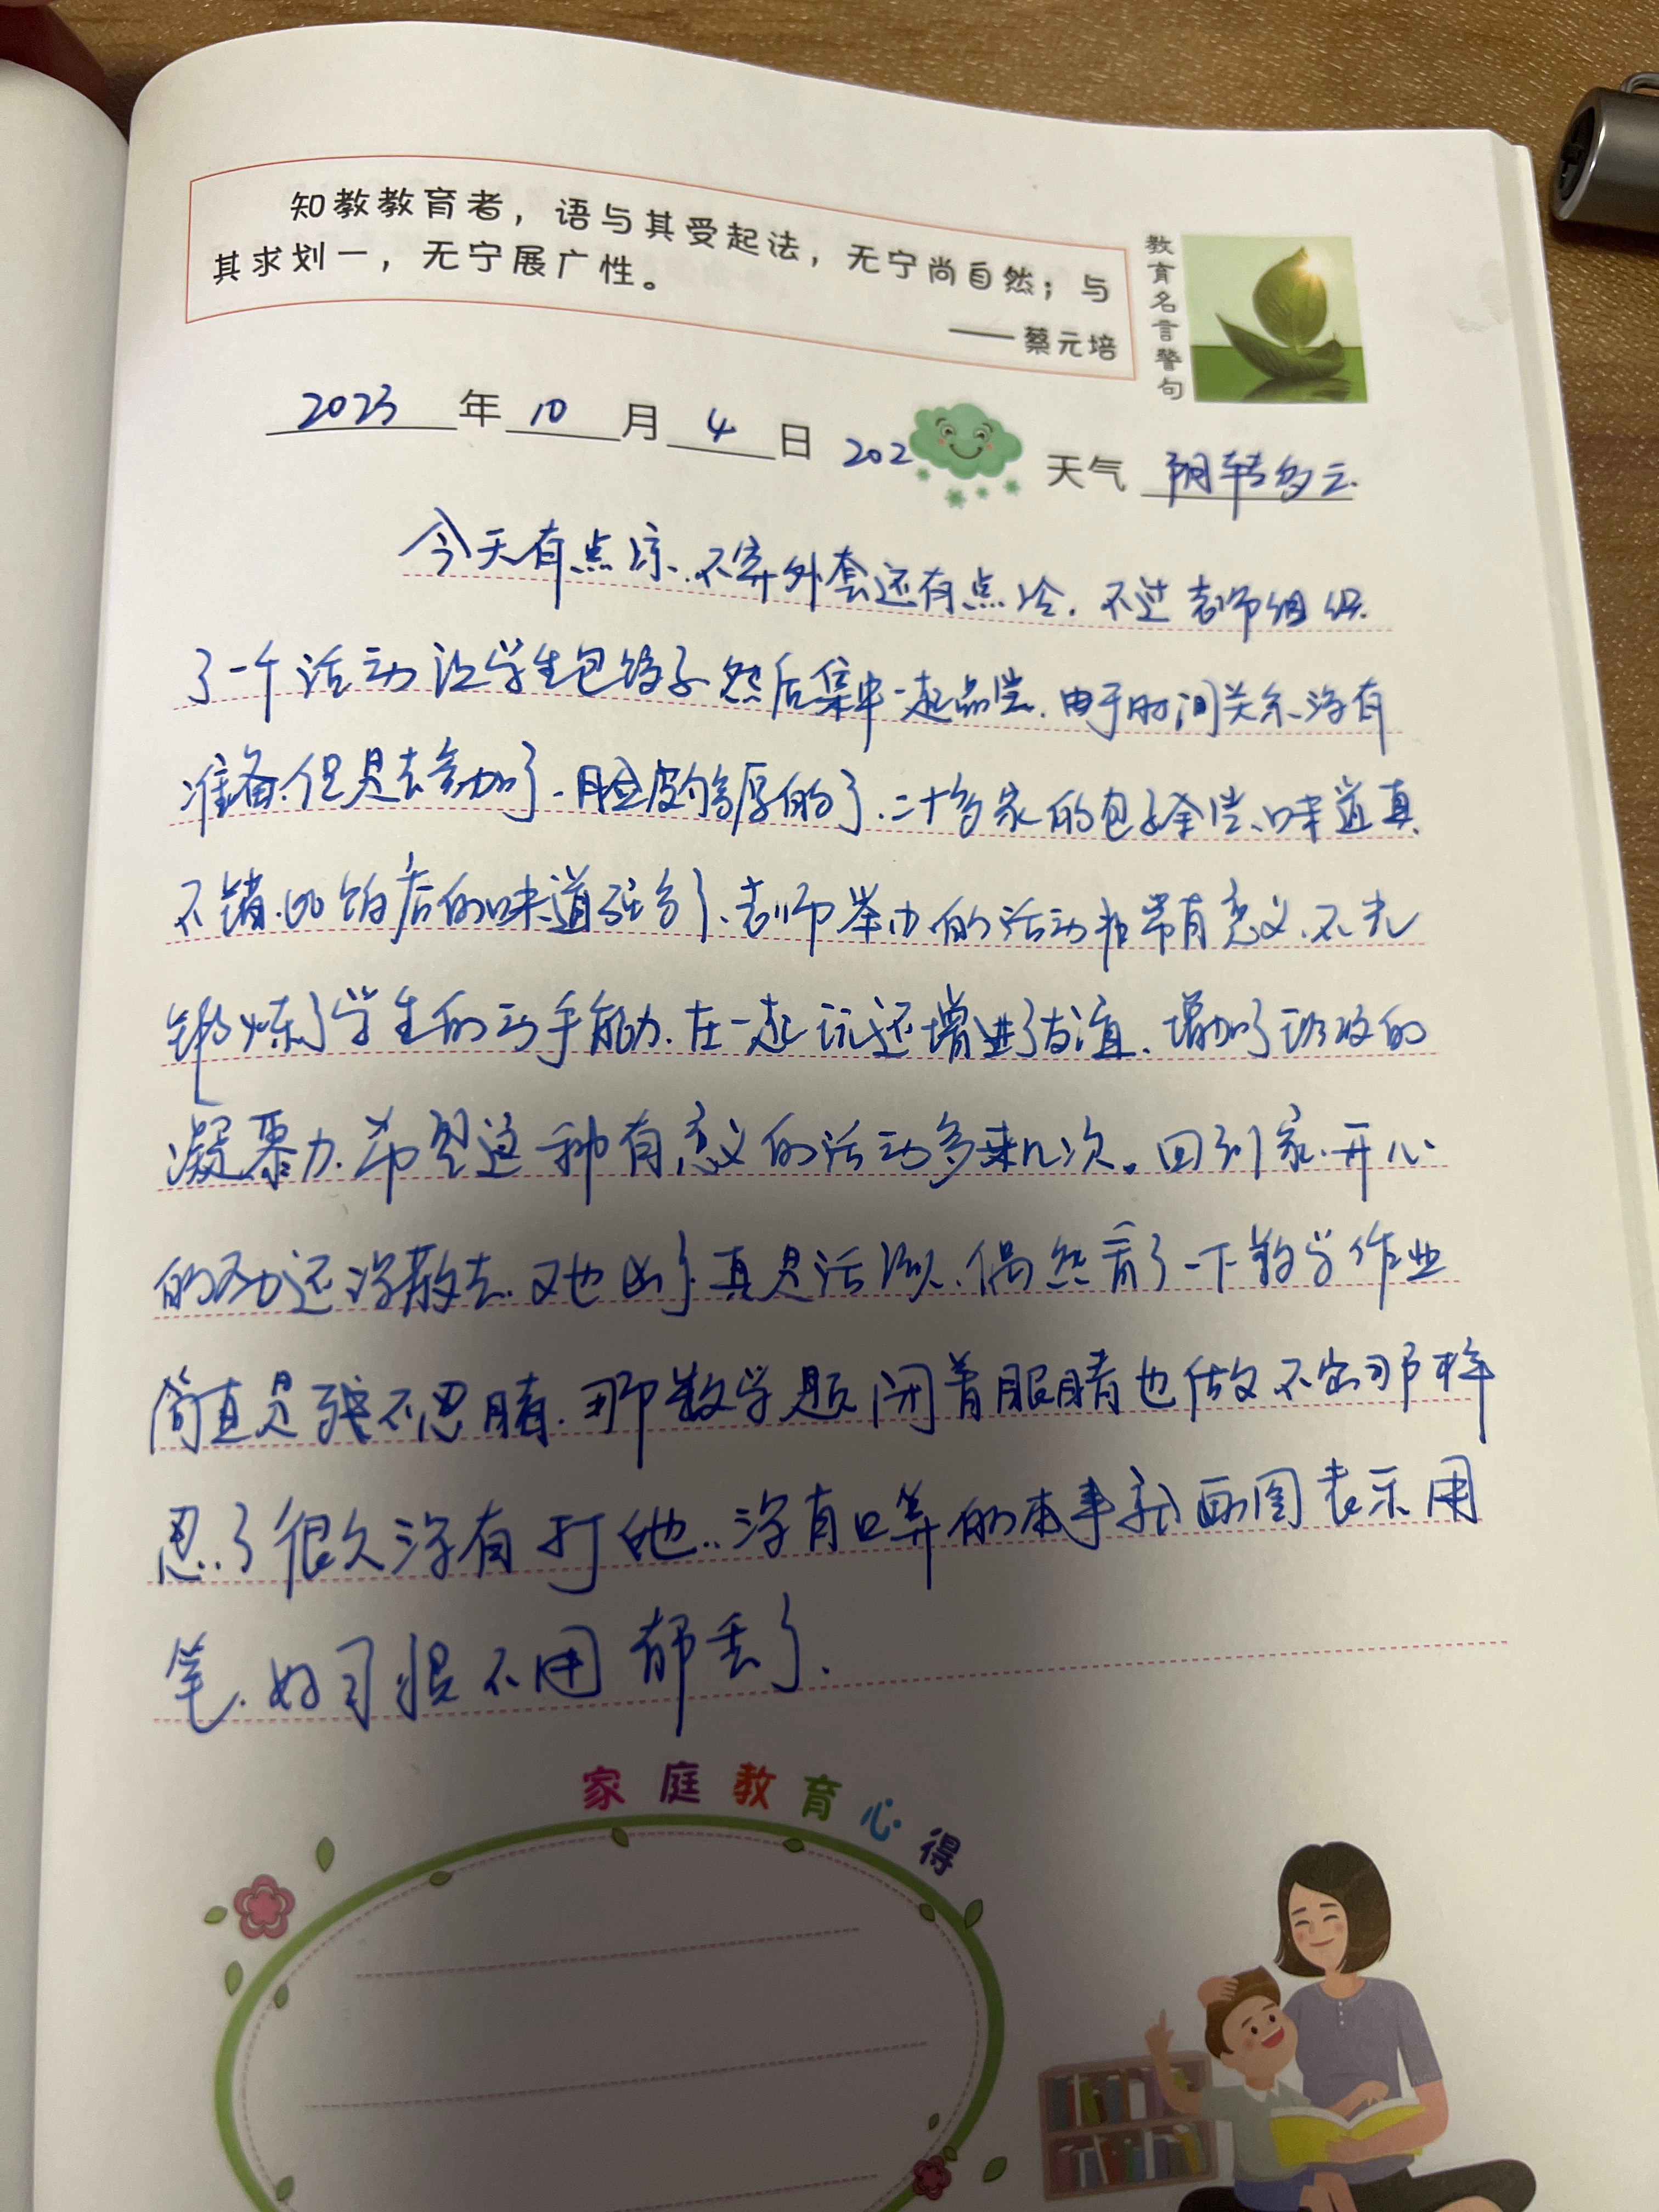 知教教育者，语与其受起法，无宁尚自然；与
其求划一，无宁展广性。
——蔡元培
教育名言警句
2023年10月4日 202 天气 阴转多云.
今天有点凉.不穿外套还有点冷.不过老师组织
了一个活动让学生包饺子然后集中一起品尝.由于时间关系没有
准备.但是去参加了.脸皮够厚的了.二十多家的包子全尝、味道真
不错.比饭店的味道强多了.老师举办的活动非常有意义.不光
锻炼了学生的动手能力.在一起玩还增进了友谊.增加了班级的
凝聚力.希望这种有意义的活动多来几次。回到家.开心
的劲还没散去.又出了真是活.偶然看了一下数学作业
简直是残不忍睹.那数学题闭着眼睛也做不出那样
忍了很久没有打他..没有口算的本事就画图表示用
笔.好习惯不用都丢了.
家庭教育心得